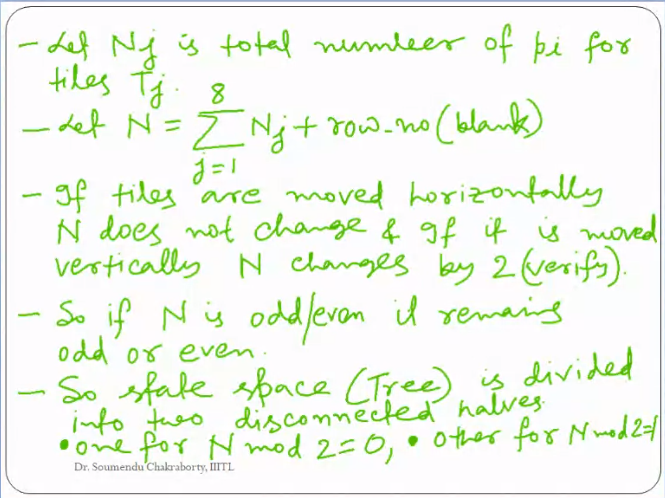 - Let Nj is total number of pi for
tiles Tj.
- Let N = 8∑j=1 Nj + row-no (blank)
- If tiles are moved horizontally
N does not change & If it is moved
vertically N changes by 2 (verify).
- So if N is odd/even it remains
odd or even.
- So state space (Tree) is divided
into two disconnected halves.
• one for N mod 2=0, • other for N mod 2=1
Dr. Soumendu Chakraborty, IIITL